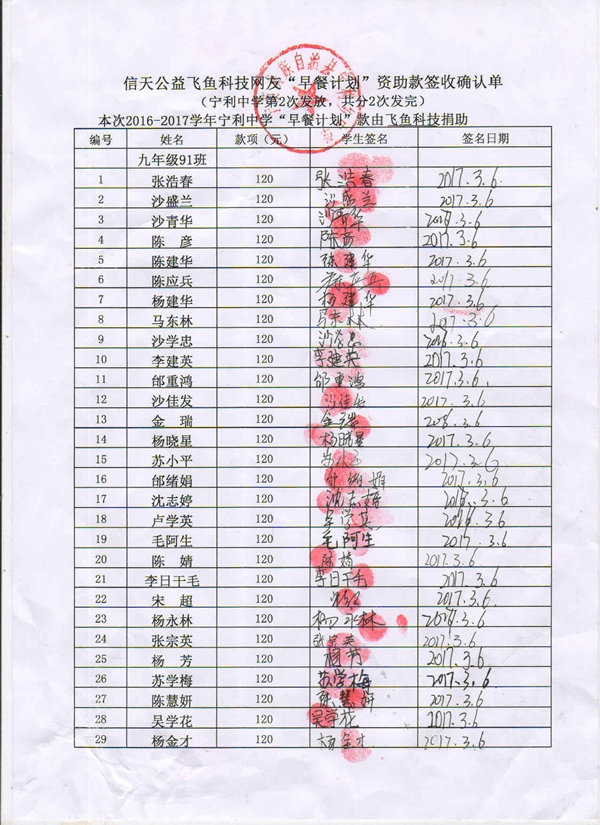 信天公益飞鱼科技网友“早餐计划”资助款签收确认单
（宁利中学第2次发放，共分2次发完）
本次2016-2017学年宁利中学“早餐计划”款由飞鱼科技捐助
编号 姓名 款项（元） 学生签名 签名日期
九年级91班
1 张浩春 120 张浩春 2017.3.6
2 沙盛兰 120 沙盛兰 2017.3.6
3 沙青华 120 沙青华 3.6
4 陈 彦 120 陈彦 2017.3.6
5 陈建华 120 陈建华 2017.3.6
6 陈应兵 120 陈应兵 2017.3.6
7 杨建华 120 杨建华 2017.3.6
8 马东林 120 马东林 2017.3.6
9 沙学忠 120 沙学忠 3.6
10 李建英 120 李建英 2017.3.6
11 邰重鸿 120 邰重鸿 2017.3.6.
12 沙佳发 120 沙佳发 2017.3.6
13 金 瑞 120 金瑞 3.6
14 杨晓星 120 杨晓星 2017.3.6
15 苏小平 120 苏小平 2017.3.6
16 邰绪娟 120 邰绪娟 2017.3.6
17 沈志婷 120 沈志婷 3.6
18 卢学英 120 3.6
19 毛阿生 120 毛阿生 2017.3.6
20 陈 婧 120 陈婧 2017.3.6
21 李日干毛 120 李日干毛 2017.3.6
22 宋 超 120 2017.3.6
23 杨永林 120 杨永林 3.6
24 张宗英 120 张宗英 2017.3.6
25 杨 芳 120 杨芳 2017.3.6
26 苏学梅 120 苏学梅 2017.3.6
27 陈慧妍 120 陈慧妍 2017.3.6
28 吴学花 120 吴学花 2017.3.6
29 杨金才 120 杨金才 2017.3.6